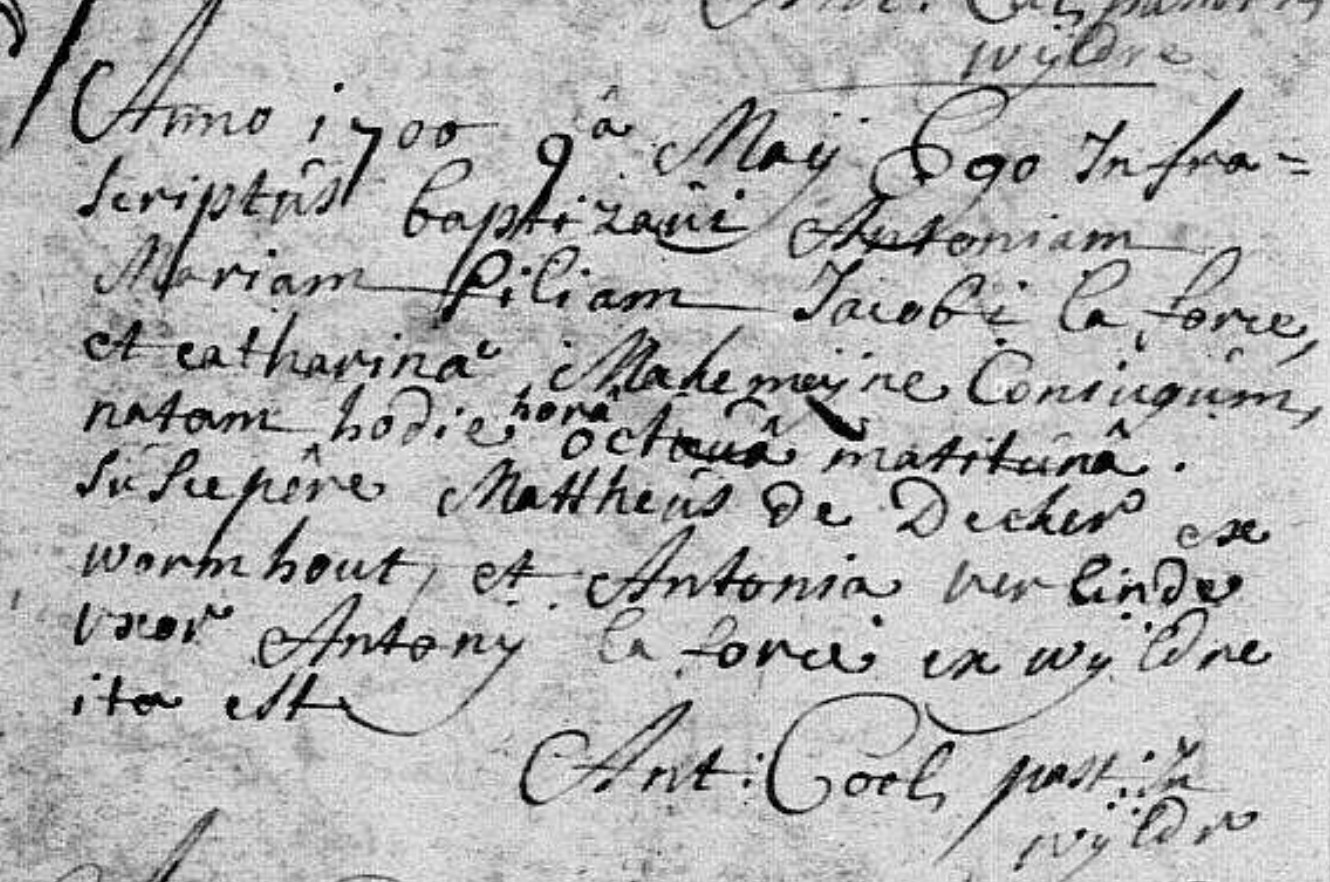 wijldre
Anno 1700 9â Maij Ego Infra=
scriptûs baptizaûi Antoniam
Mariam filiam Jacobi la force,
et catharinae Makemeijne Coniugûm,
natam hodie horâ octauâ matitunâ.
sûscepêre Mattheûs de Decker ex
wormhout, et Antonia verlinde
vxor Antony la force ex wijldre
ita est
Ant: Coel past: in
wijldre